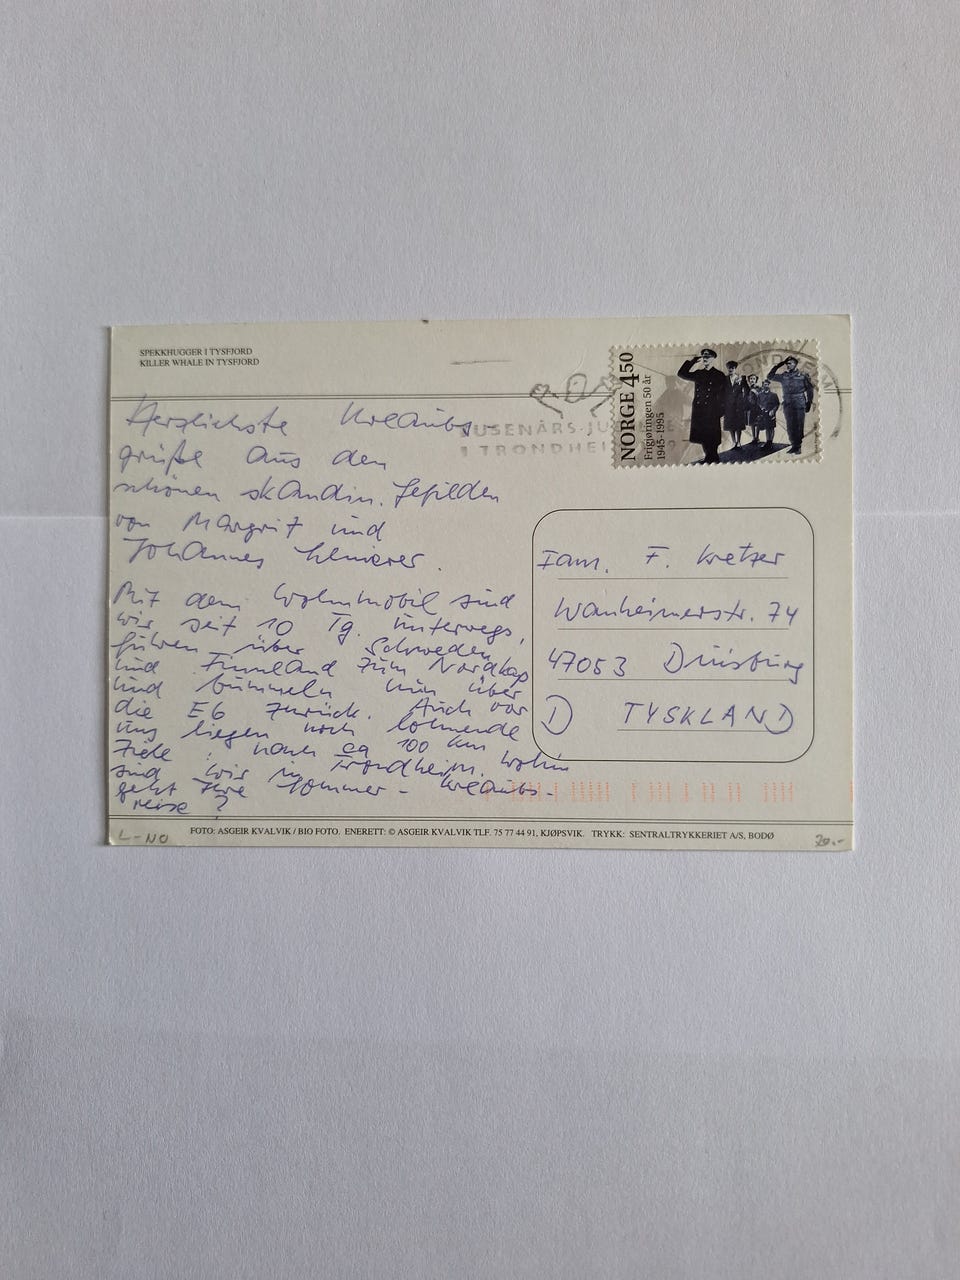 SPEKKHUGGER I TYSFJORD
KILLER WHALE IN TYSFJORD
NORGE 450
Frigjøringen 50 år
1945-1995
TUSENÅRS-JUBILEET
I TRONDHEIM
Herzlichste Urlaubs-
grüße aus den
schönen skandin. Gefilden
von Margrit und
Johannes
Mit dem Wohnmobil sind
wir seit 10 Tg. unterwegs,
fuhren über Schweden
und Finnland zum Nordkap
und bummeln nun über
die E6 zurück. Auch vor
uns liegen noch lohnende
Ziele! nach ca 100 km
sind wir in Trondheim. Wohin
geht Ihre Sommer-Urlaubs-
reise?
Fam. F. Kretzer
Wanheimerstr. 74
47053 Duisburg
D TYSKLAND
FOTO: ASGEIR KVALVIK / BIO FOTO. ENERETT: © ASGEIR KVALVIK TLF. 75 77 44 91, KJØPSVIK. TRYKK: SENTRALTRYKKERIET A/S, BODØ
L-NO
20.-